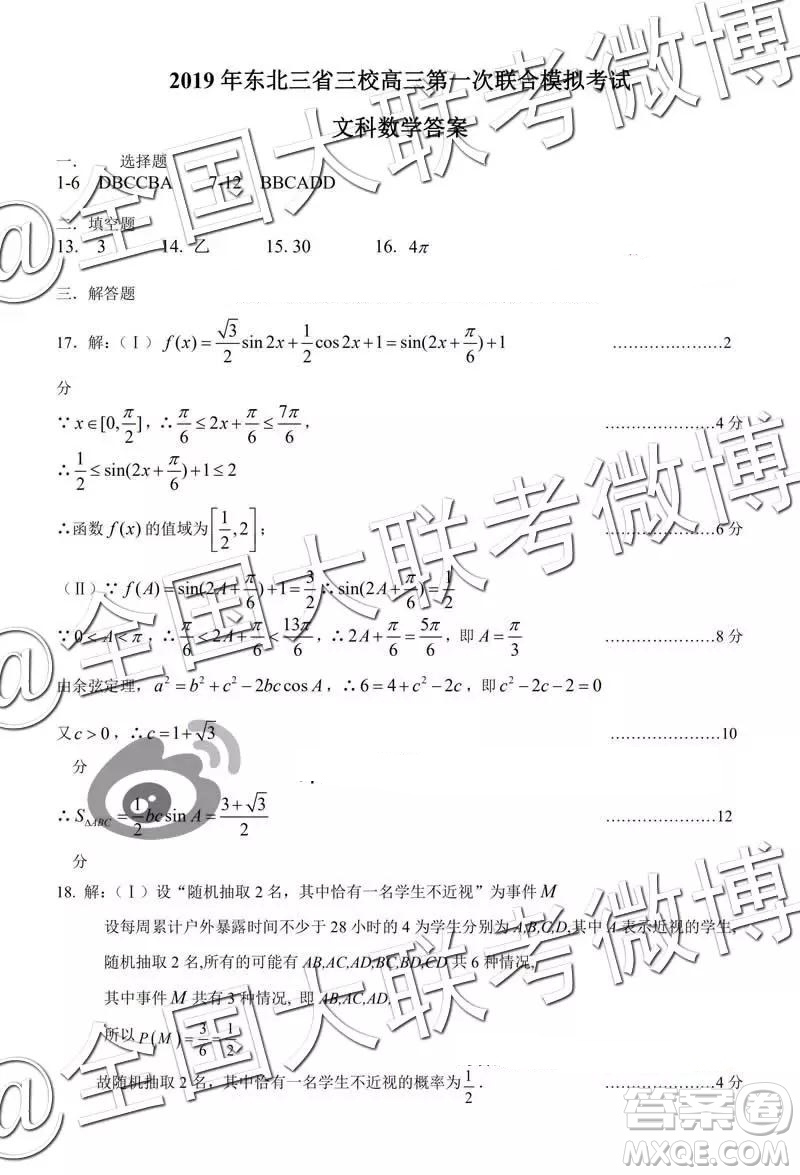 2019 年东北三省三校高三第一次联合模拟考试
文科数学答案
一． 选择题
1-6 DBCCBA 7-12 BBCADD
二．填空题
13. 3 14. 乙 15. 30 16. 4π
三．解答题
17．解：（Ⅰ） f(x)=√3/2 sin2x+1/2 cos2x+1=sin(2x+π/6)+1 …………………2
分
∵ x∈[0,π/2]，∴π/6≤2x+π/6≤7π/6， …………………4 分
∴1/2≤sin(2x+π/6)+1≤2
∴函数 f(x) 的值域为[1/2,2]； …………………6 分
（Ⅱ）∵ f(A)=sin(2A+π/6)+1=3/2 ∴sin(2A+π/6)=1/2
∵0<A<π，∴π/6<2A+π/6<13π/6，∴2A+π/6=5π/6，即 A=π/3 …………………8 分
由余弦定理，a²=b²+c²-2bc cos A，∴6=4+c²-2c，即c²-2c-2=0
又c>0，∴c=1+√3 …………………10
分
∴S△ABC=1/2 bc sin A=(3+√3)/2 …………………12
分
18. 解：（Ⅰ）设“随机抽取 2 名，其中恰有一名学生不近视”为事件 M
设每周累计户外暴露时间不少于 28 小时的 4 为学生分别为 A,B,C,D,其中 A 表示近视的学生，
随机抽取 2 名,所有的可能有 AB,AC,AD,BC,BD,CD 共 6 种情况,
其中事件 M 共有 3 种情况, 即 AB,AC,AD,
所以 P(M)=3/6=1/2
故随机抽取 2 名，其中恰有一名学生不近视的概率为1/2． …………………4 分
@全国大联考微博
@全国大联考微博
答案卷
MXQE.COM